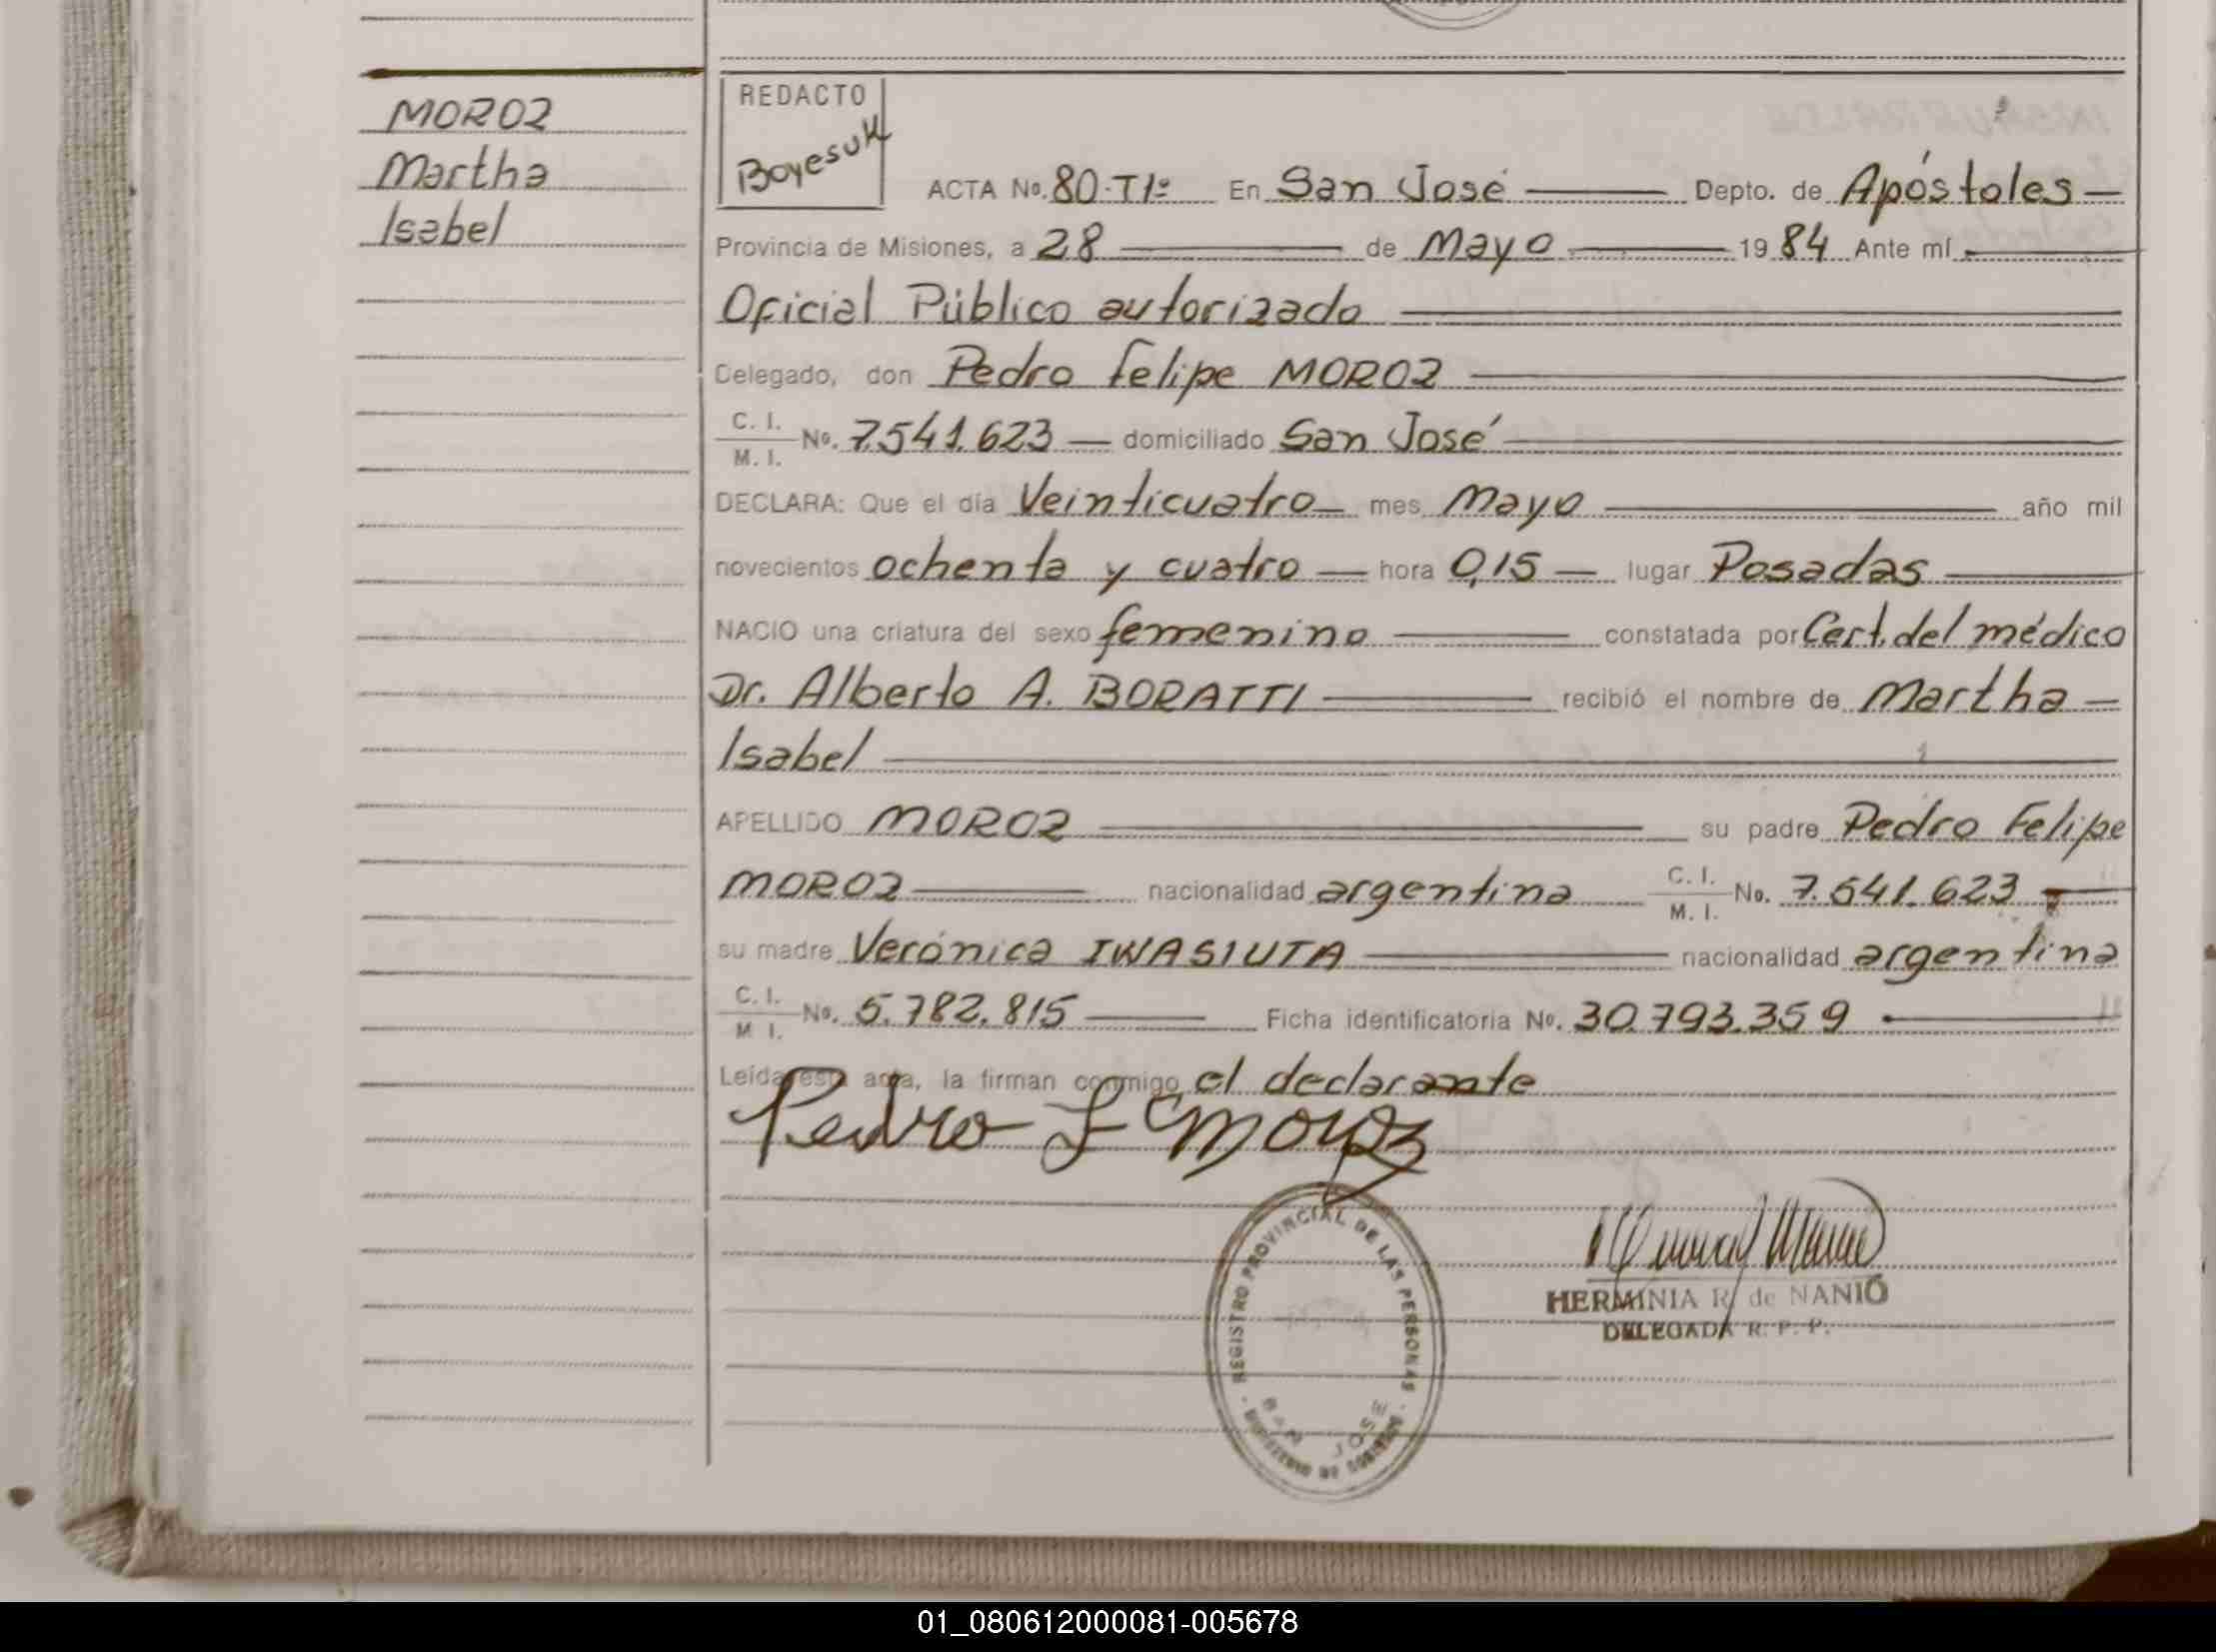 MOROZ
Martha
Isabel
REDACTO
Boyesuk
ACTA No. 80-T1º En San José Depto. de Apóstoles
Provincia de Misiones, a 28 de Mayo 1984 Ante mí
Oficial Público autorizado
Delegado, don Pedro Felipe MOROZ
C. I.
M. I. No. 7.541.623 domiciliado San José
DECLARA: Que el día Veinticuatro mes Mayo año mil
novecientos ochenta y cuatro hora 0,15 lugar Posadas
NACIO una criatura del sexo femenino constatada por Cert. del médico
Dr. Alberto A. BORATTI recibió el nombre de Martha
Isabel
APELLIDO MOROZ su padre Pedro Felipe
MOROZ nacionalidad argentina C. I. M. I. No. 7.541.623
su madre Verónica IWASIUTA nacionalidad argentina
C. I.
M. I. No. 5.782.815 Ficha identificatoria No. 30.793.359
Leída esta acta, la firman conmigo el declarante
Pedro F Moroz
REGISTRO PROVINCIAL DE LAS PERSONAS
SAN JOSE
MINISTERIO DE GOBIERNO
HERMINIA R. de NANIO
DELEGADA R. P. P.
01_080612000081-005678